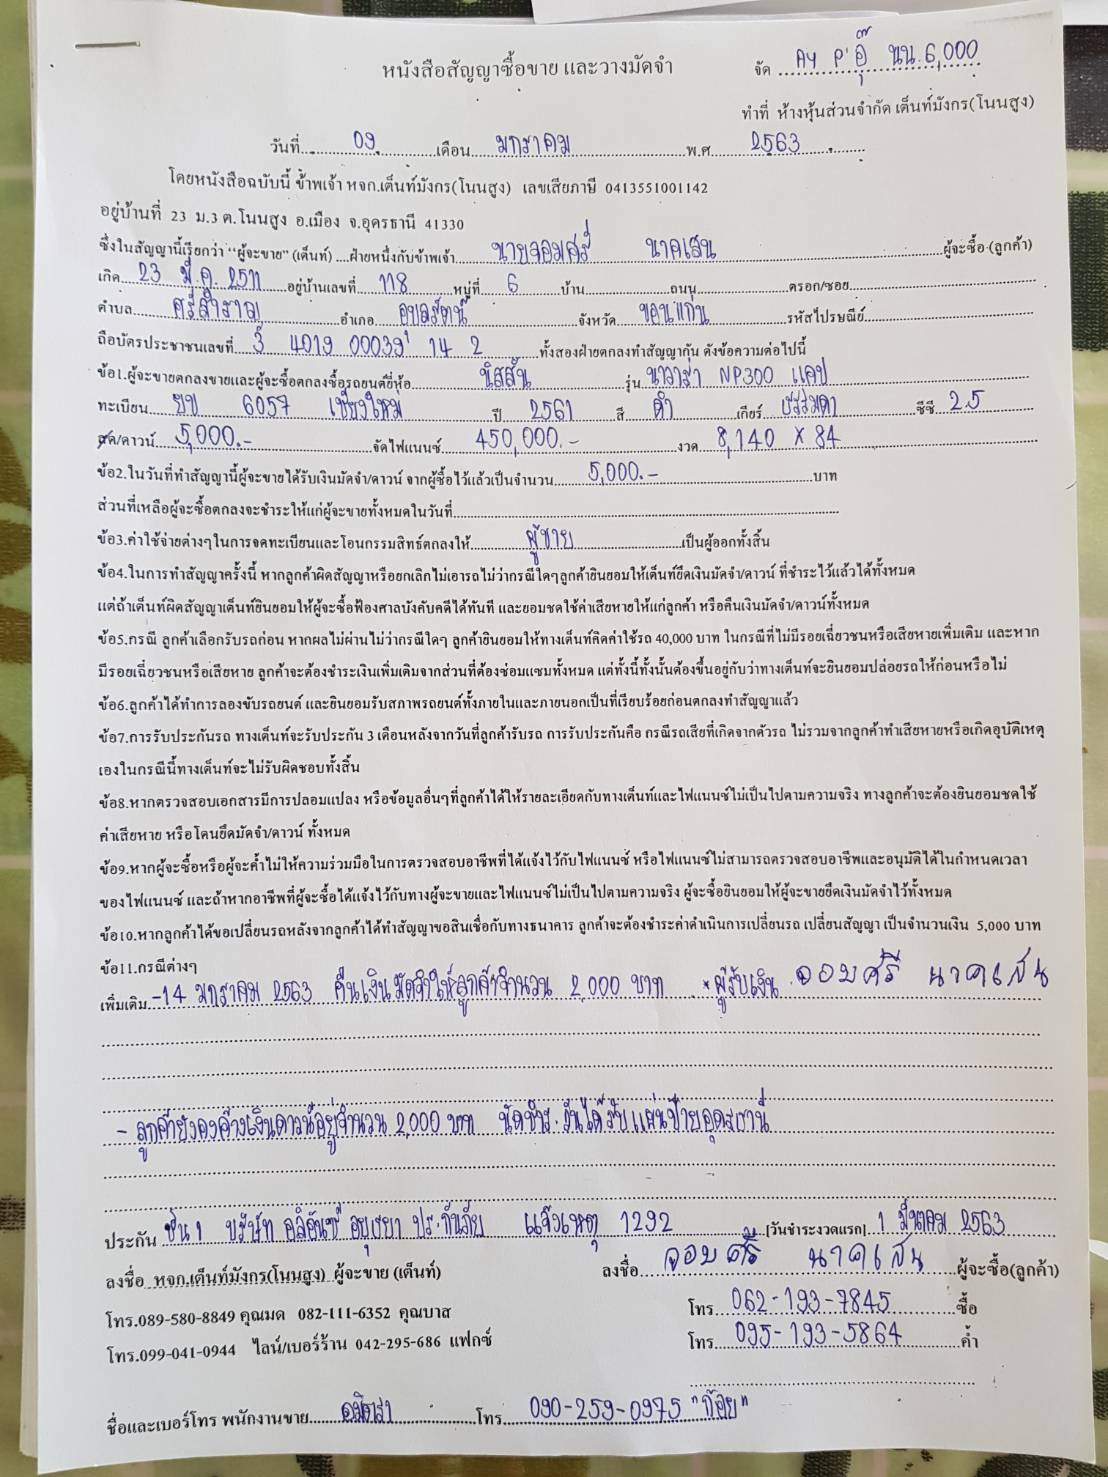 หนังสือสัญญาซื้อขาย และวางมัดจำ
จัด AY P'อุ๊ นน.6,000
ทำที่ ห้างหุ้นส่วนจำกัด เต็นท์มังกร(โนนสูง)
วันที่ 09 เดือน มกราคม พ.ศ 2563
โดยหนังสือฉบับนี้ ข้าพเจ้า หจก.เต็นท์มังกร(โนนสูง) เลขเสียภาษี 0413551001142
อยู่บ้านที่ 23 ม.3 ต.โนนสูง อ.เมือง จ.อุดรธานี 41330
ซึ่งในสัญญานี้เรียกว่า "ผู้จะขาย" (เต็นท์) ....ฝ่ายหนึ่งกับข้าพเจ้า นายจอมศรี นาคเสน ผู้จะซื้อ (ลูกค้า)
เกิด 23 มี.ค. 2511 อยู่บ้านเลขที่ 118 หมู่ที่ 6 บ้าน ถนน ตรอก/ซอย
ตำบล ศรีสำราญ อำเภอ อุบลรัตน์ จังหวัด ขอนแก่น รหัสไปรษณีย์
ถือบัตรประชาชนเลขที่ 3 4019 00039 14 2 ทั้งสองฝ่ายตกลงทำสัญญากัน ดังข้อความต่อไปนี้
ข้อ1.ผู้จะขายตกลงขายและผู้จะซื้อตกลงซื้อรถยนต์ยี่ห้อ นิสสัน รุ่น นาวาร่า NP300 แคป
ทะเบียน ยข 6057 เชียงใหม่ ปี 2561 สี ดำ เกียร์ ธรรมดา ซีซี 2.5
สด/ดาวน์ 5,000.- จัดไฟแนนซ์ 450,000.- งวด 8,140 x 84
ข้อ2.ในวันที่ทำสัญญานี้ผู้จะขายได้รับเงินมัดจำ/ดาวน์ จากผู้ซื้อไว้แล้วเป็นจำนวน 5,000.- บาท
ส่วนที่เหลือผู้จะซื้อตกลงจะชำระให้แก่ผู้จะขายทั้งหมดในวันที่
ข้อ3.ค่าใช้จ่ายต่างๆในการจดทะเบียนและโอนกรรมสิทธิ์ตกลงให้ ผู้ขาย เป็นผู้ออกทั้งสิ้น
ข้อ4.ในการทำสัญญาครั้งนี้ หากลูกค้าผิดสัญญาหรือยกเลิกไม่เอารถไม่ว่ากรณีใดๆลูกค้ายินยอมให้เต็นท์ยึดเงินมัดจำ/ดาวน์ ที่ชำระไว้แล้วได้ทั้งหมด
แต่ถ้าเต็นท์ผิดสัญญาเต็นท์ยินยอมให้ผู้จะซื้อฟ้องศาลบังคับคดีได้ทันที และยอมชดใช้ค่าเสียหายให้แก่ลูกค้า หรือคืนเงินมัดจำ/ดาวน์ทั้งหมด
ข้อ5.กรณี ลูกค้าเลือกรับรถก่อน หากผลไม่ผ่านไม่ว่ากรณีใดๆ ลูกค้ายินยอมให้ทางเต็นท์คิดค่าใช้รถ 40,000 บาท ในกรณีที่ไม่มีรอยเฉี่ยวชนหรือเสียหายเพิ่มเติม และหาก
มีรอยเฉี่ยวชนหรือเสียหาย ลูกค้าจะต้องชำระเงินเพิ่มเติมจากส่วนที่ต้องซ่อมแซมทั้งหมด แต่ทั้งนี้ทั้งนั้นต้องขึ้นอยู่กับว่าทางเต็นท์จะยินยอมปล่อยรถให้ก่อนหรือไม่
ข้อ6.ลูกค้าได้ทำการลองขับรถยนต์ และยินยอมรับสภาพรถยนต์ทั้งภายในและภายนอกเป็นที่เรียบร้อยก่อนตกลงทำสัญญาแล้ว
ข้อ7.การรับประกันรถ ทางเต็นท์จะรับประกัน 3 เดือนหลังจากวันที่ลูกค้ารับรถ การรับประกันคือ กรณีรถเสียที่เกิดจากตัวรถ ไม่รวมจากลูกค้าทำเสียหายหรือเกิดอุบัติเหตุ
เองในกรณีนี้ทางเต็นท์จะไม่รับผิดชอบทั้งสิ้น
ข้อ8.หากตรวจสอบเอกสารมีการปลอมแปลง หรือข้อมูลอื่นๆที่ลูกค้าได้ให้รายละเอียดกับทางเต็นท์และไฟแนนซ์ไม่เป็นไปตามความจริง ทางลูกค้าจะต้องยินยอมชดใช้
ค่าเสียหาย หรือโดนยึดมัดจำ/ดาวน์ ทั้งหมด
ข้อ9.หากผู้จะซื้อหรือผู้จะค้ำไม่ให้ความร่วมมือในการตรวจสอบอาชีพที่ได้แจ้งไว้กับไฟแนนซ์ หรือไฟแนนซ์ไม่สามารถตรวจสอบอาชีพและอนุมัติได้ในกำหนดเวลา
ของไฟแนนซ์ และถ้าหากอาชีพที่ผู้จะซื้อได้แจ้งไว้กับทางผู้จะขายและไฟแนนซ์ไม่เป็นไปตามความจริง ผู้จะซื้อยินยอมให้ผู้จะขายยึดเงินมัดจำไว้ทั้งหมด
ข้อ10.หากลูกค้าได้ขอเปลี่ยนรถหลังจากลูกค้าได้ทำสัญญาขอสินเชื่อกับทางธนาคาร ลูกค้าจะต้องชำระค่าดำเนินการเปลี่ยนรถ เปลี่ยนสัญญา เป็นจำนวนเงิน 5,000 บาท
ข้อ11.กรณีต่างๆ
เพิ่มเติม -14 มกราคม 2563 คืนเงินมัดจำให้ลูกค้าจำนวน 2,000 บาท *ผู้รับเงิน จอมศรี นาคเสน
- ลูกค้ายังคงค้างเงินดาวน์อยู่จำนวน 2,000 บาท นัดชำระวันได้รับแผ่นป้ายอุดรธานี
ประกัน ชั้น 1 บริษัท อลิอันซ์ อยุธยา ประกันภัย แจ้งเหตุ 1292 [วันชำระงวดแรก] 1 มีนาคม 2563
ลงชื่อ หจก.เต็นท์มังกร(โนนสูง) ผู้จะขาย (เต็นท์) ลงชื่อ จอมศรี นาคเสน ผู้จะซื้อ(ลูกค้า)
โทร.089-580-8849 คุณมด 082-111-6352 คุณบาส โทร 062-193-7845 ซื้อ
โทร.099-041-0944 ไลน์/เบอร์ร้าน 042-295-686 แฟกซ์ โทร 095-193-5864 ค้ำ
ชื่อและเบอร์โทร พนักงานขาย โทร 090-259-0975 "ก้อย"